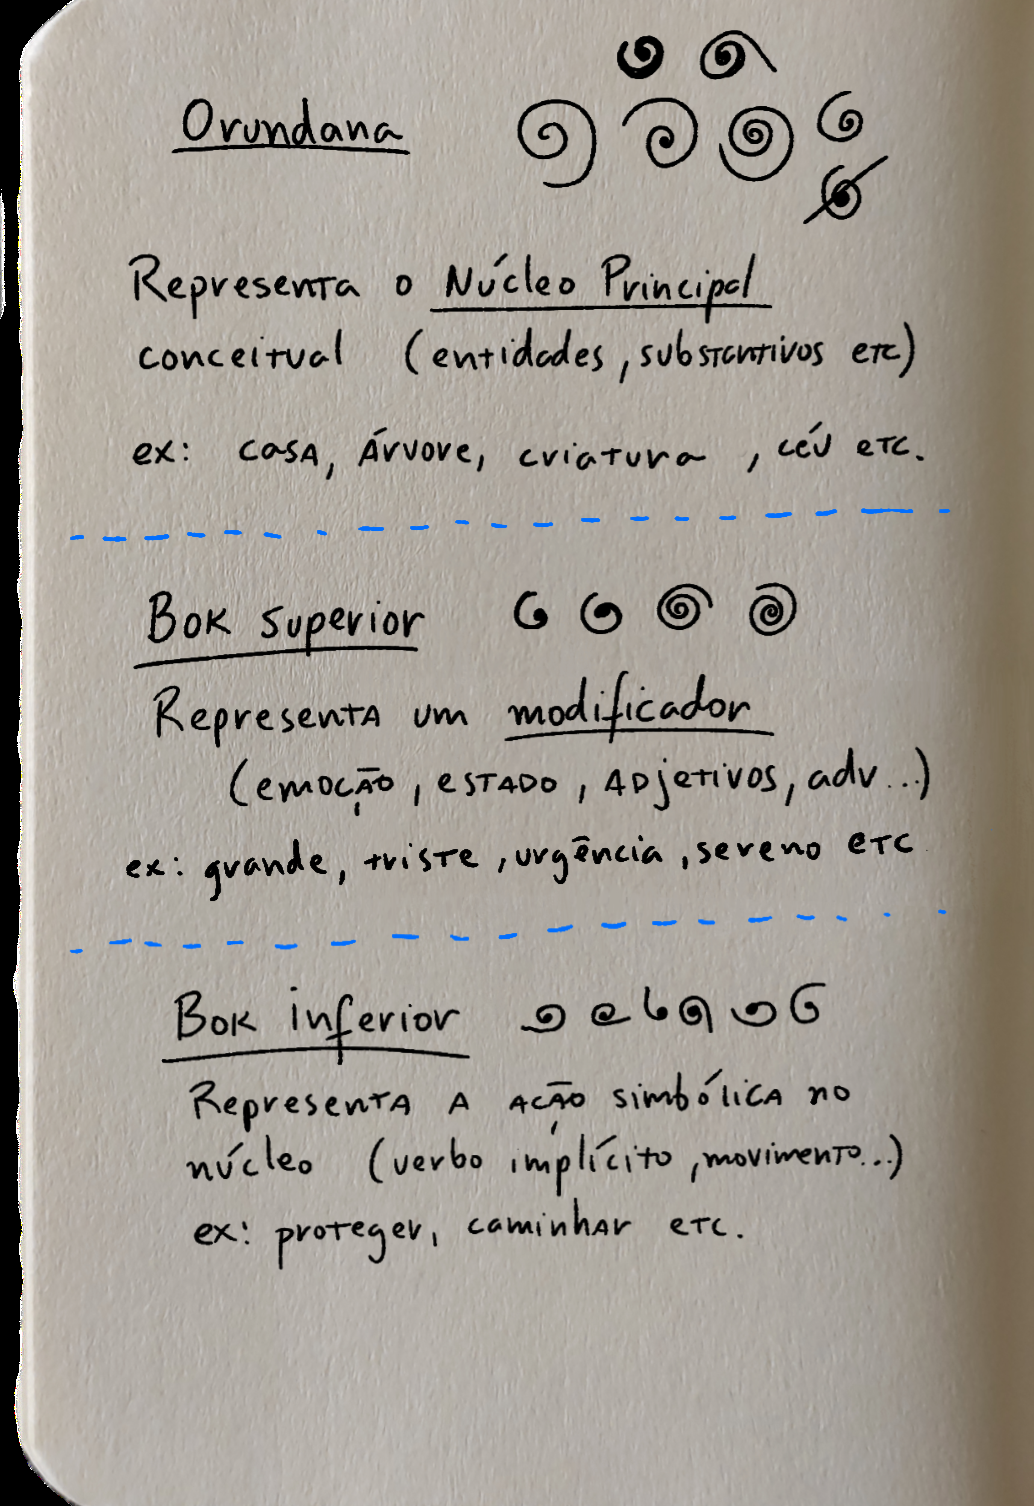 Orundana
Representa o Núcleo Principal
conceitual (entidades, substantivos etc)
ex: casa, árvore, criatura, céu etc.
Bok superior
Representa um modificador
(emoção, estado, adjetivos, adv...)
ex: grande, triste, urgência, sereno etc
Bok inferior
Representa a ação simbólica no
núcleo (verbo implícito, movimento...)
ex: proteger, caminhar etc.